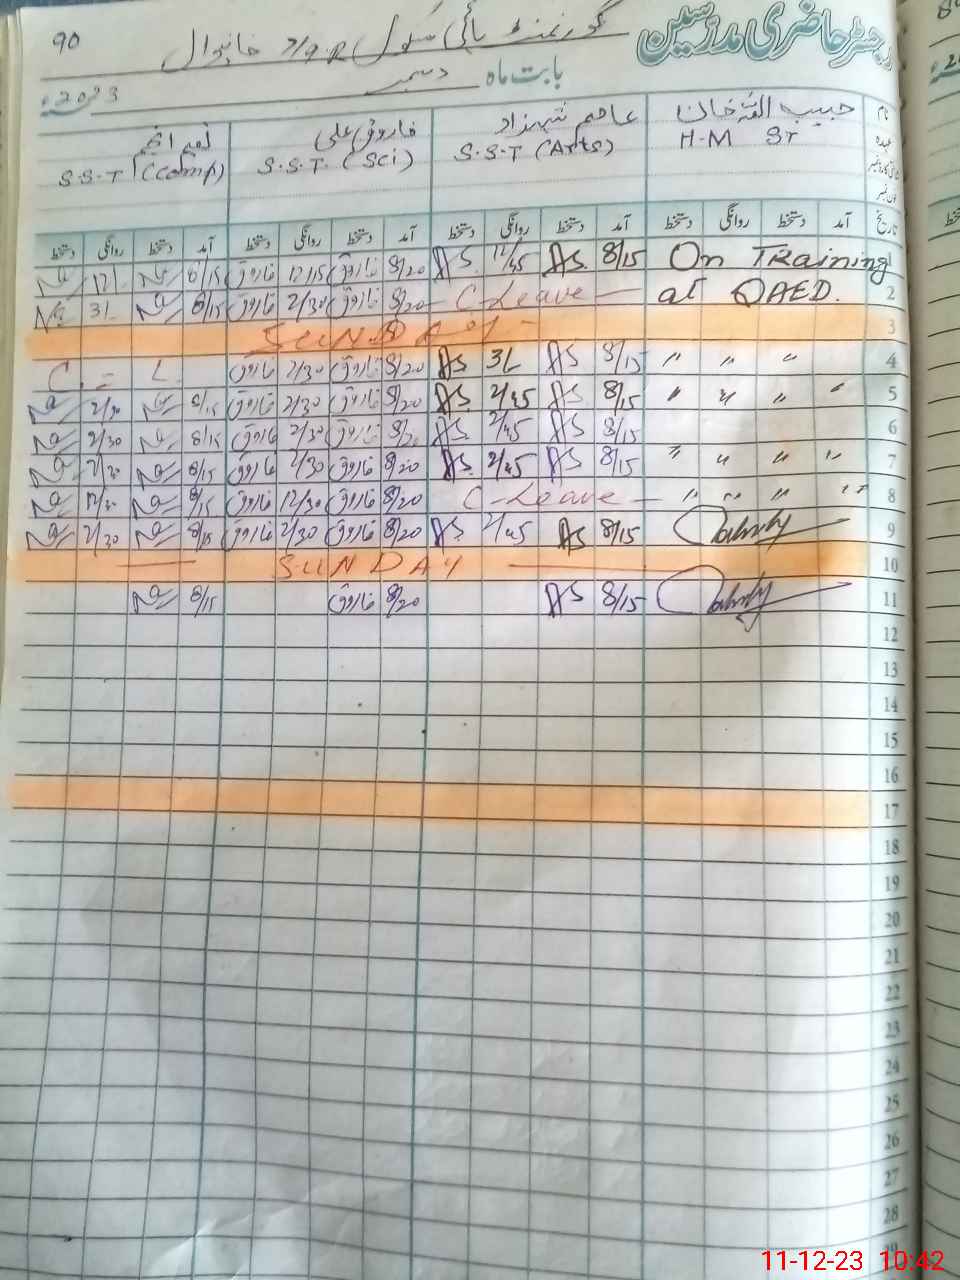 90
رجسٹر حاضری مدرسین
گورنمنٹ ہائی سکول 7/9.R خانیوال
بابت ماہ دسمبر 2023ء
نام حبیب اللہ خان عاصم شہزاد فاروق علی نعیم انجم
عہدہ H.M SS S.S.T (Arts) S.S.T. (Sci) S.S.T (Comp)
تاریخ آمد دستخط روانگی دستخط آمد دستخط روانگی دستخط آمد دستخط روانگی دستخط آمد دستخط روانگی دستخط
1 On Training 8/15 AS 12/45 AS 8/20 فاروق 12/15 فاروق 8/15
2 at QAED. C-Leave 8/20 فاروق 2/30 فاروق 8/15 3L
3 SUNDAY
4 〃 〃 〃 8/15 AS 3L AS 8/20 فاروق 2/30 فاروق C.-L
5 〃 〃 〃 〃 8/15 AS 2/45 AS 8/20 فاروق 2/30 فاروق 8/15 2/30
6 8/15 AS 2/45 AS 8/20 فاروق 2/30 فاروق 8/15 2/30
7 〃 〃 〃 〃 8/15 AS 2/45 AS 8/20 فاروق 2/30 فاروق 8/15 2/30
8 〃 〃 〃 〃 C-Leave 8/20 فاروق 12/30 فاروق 8/15 12/30
9 8/15 AS 2/45 AS 8/20 فاروق 2/30 فاروق 8/15 2/30
10 SUNDAY
11 8/15 AS 8/20 فاروق 8/15
12
13
14
15
16
17
18
19
20
21
22
23
24
25
26
27
28
11-12-23 10:42